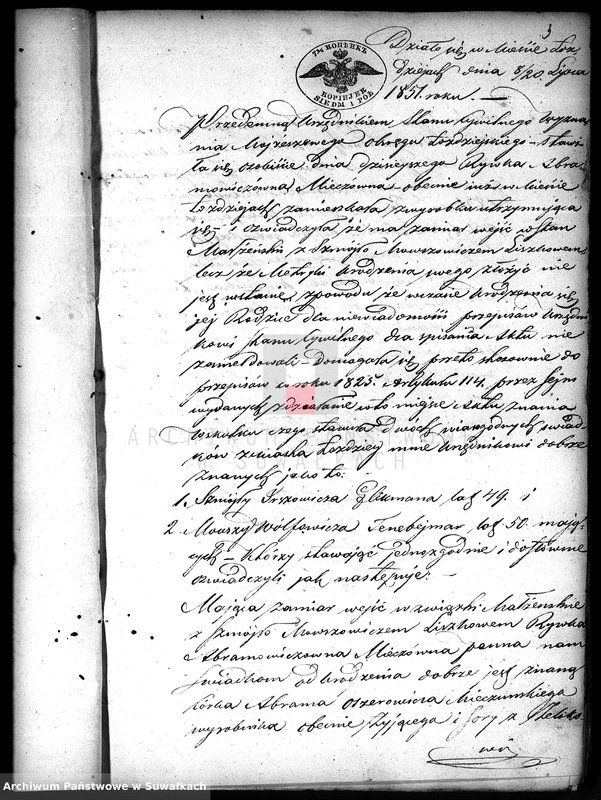 3
7½ КОПѢЕКЪ
KOPIEJEK
SIEDM I POŁ
Działo się w Mieście Łoz-
dziejach dnia 8/20 Lipca
1851. roku. —
Przedemną Urzędnikiem Stanu Cywilnego Wyzna-
nia Mojżeszowego Okręgu Łozdziejskiego – stawi-
ła się osobiście dnia dzisiejszego Rywka Abra-
mowiczówna Mieczówna obecnie tuż w Mieście
Łozdziejach zamieszkała z wyrobku utrzymująca
się – i oświadczyła że ma zamiar wejść w stan
Małżeński z Szmójło Mowszowiczem Liszkowem
lecz że Metryki Urodzenia swego złożyć nie
jest wstanie, z powodu że wczasie Urodzenia się
jej Rodzice dla niewiadomości przepisów Urzędni-
kowi Stanu Cywilnego dla spisania Aktu nie
zameldowali – Domagała się przeto stosownie do
przepisów w roku 1825. Artykułu 114. przez Sejm
wydanych zdziałanie w to miejsce Aktu Znania
Wskutku czego stawiła dwóch wiarygodnych świad-
ków z miasta Łozdziej mnie Urzędnikowi dobrze
znanych jako to:
1. Szmójły Irszowicza Glikmana lat 49. i
2. Mowszy Wolfowicza Tenebejmar lat 50. mają-
cych – Którzy stawając jednozgodnie i dosłownie
oświadczyli jak następuje: —
Mająca zamiar wejść w związki Małżeńskie
z Szmójło Mowszowiczem Liszkowem Rywka
Abramowiczowna Mieczówna panna nam
świadkom od urodzenia dobrze jest znaną
córka Abrama Oszerowicza Mieczunskiego
wyrobnika obecnie żyjącego i Sory z
ARCHIWUM PAŃSTWOWE
W SUWAŁKACH
Archiwum Państwowe w Suwałkach